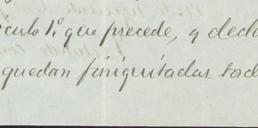 culo 1º que precede, y decla
quedan finiquitadas tod